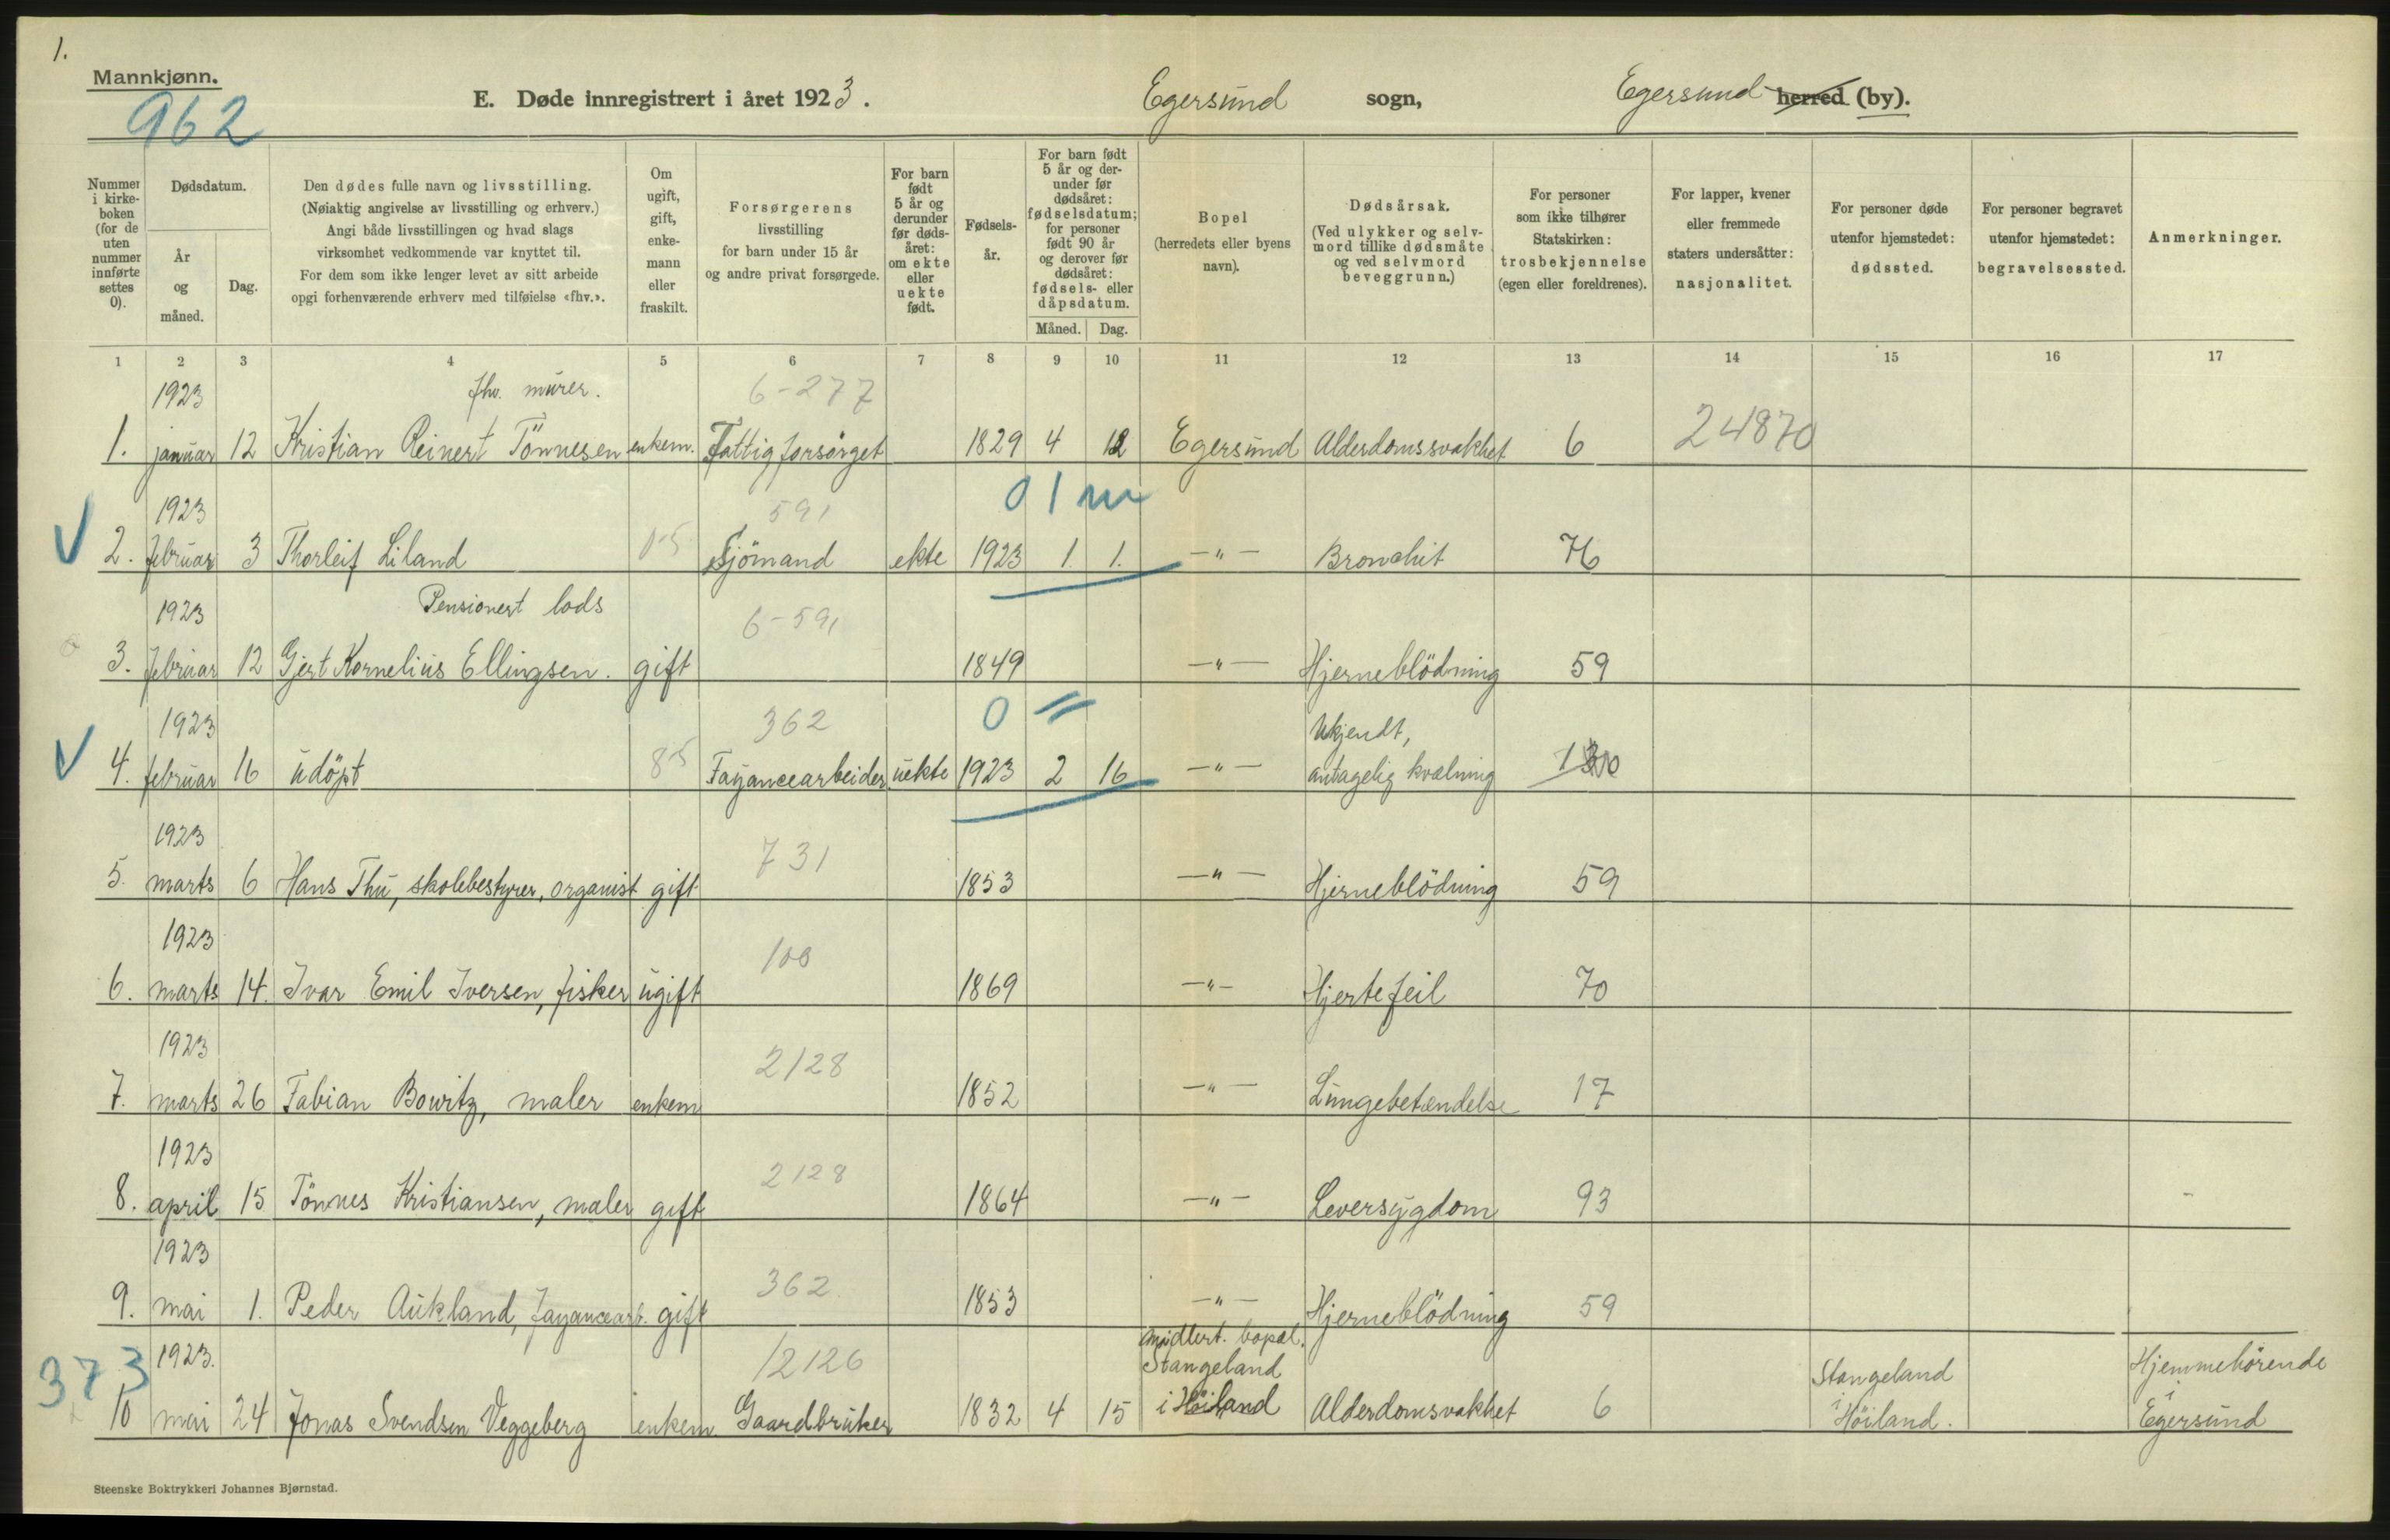 1.
Mannkjønn.
962
E. Døde innregistrert i året 1923. Egersund sogn, Egersund herred (by).
Nummer i kirkeboken (for de uten nummer innførte settes 0).
Dødsdatum.
År og måned.
Dag.
Den dødes fulle navn og livsstilling.
(Nøiaktig angivelse av livsstilling og erhverv.)
Angi både livsstillingen og hvad slags
virksomhet vedkommende var knyttet til.
For dem som ikke lenger levet av sitt arbeide
opgi forhenværende erhverv med tilføielse «fhv.».
Om ugift, gift, enkemann eller fraskilt.
Forsørgerens
livsstilling
for barn under 15 år
og andre privat forsørgede.
For barn født 5 år og derunder før dødsåret: om ekte eller uekte født.
Fødselsår.
For barn født 5 år og derunder før dødsåret: fødselsdatum; for personer født 90 år og derover før dødsåret: fødsels- eller dåpsdatum.
Måned. Dag.
Bopel
(herredets eller byens
navn).
Dødsårsak.
(Ved ulykker og selvmord tillike dødsmåte og ved selvmord beveggrunn.)
For personer
som ikke tilhører
Statskirken:
trosbekjennelse
(egen eller foreldrenes).
For lapper, kvener
eller fremmede
staters undersåtter:
nasjonalitet.
For personer døde
utenfor hjemstedet:
dødssted.
For personer begravet
utenfor hjemstedet:
begravelsessted.
Anmerkninger.
1 2 3 4 5 6 7 8 9 10 11 12 13 14 15 16 17
1923 fhv. murer. 6-277
1. januar 12 Kristian Reinert Tönnesen enkem. Fattigforsörget 1829 4 12 Egersund Alderdomssvakhet 6 24870
1923 591 0 1 m
2. februar 3 Thorleif Liland Sjömand ekte 1923 1. 1. —"— Bronchit 76
1923 Pensionert lods 6-591
3. februar 12 Gjert Kornelius Ellingsen. gift 1849 —"— Hjerneblödning 59
1923 362 0 = Ukjendt,
4. februar 16 udöpt 85 Fayancearbeider uekte 1923 2 16 —"— antagelig kvælning
1923 731
5. marts 6 Hans Thu, skolebestyrer, organist gift 1853 —"— Hjerneblödning 59
1923
6. marts 14. Ivar Emil Iversen, fisker ugift 1869 —"— Hjertefeil 70
1923 2128
7. marts 26 Fabian Bowitz, maler enkem 1852 —"— Lungebetændelse 17
1923 2128
8. april 15 Tönnes Kristiansen, maler gift 1864 —"— Leversygdom 93
1923 362
9. mai 1. Peder Aukland, fayancearb. gift 1853 —"— Hjerneblödning 59
373 1923. 12126 midlert. bopæl. Stangeland Stangeland Hjemmehörende
10 mai 24 Jonas Svendsen Veggeberg enkem. Gaardbruker 1832 4 15 i Höiland Alderdomsvakhet 6 i Höiland. i Egersund
Steenske Boktrykkeri Johannes Bjørnstad.